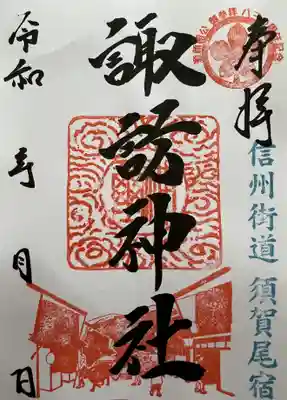 奉拝
信州街道 須賀尾宿
諏訪神社
令和 年 月 日